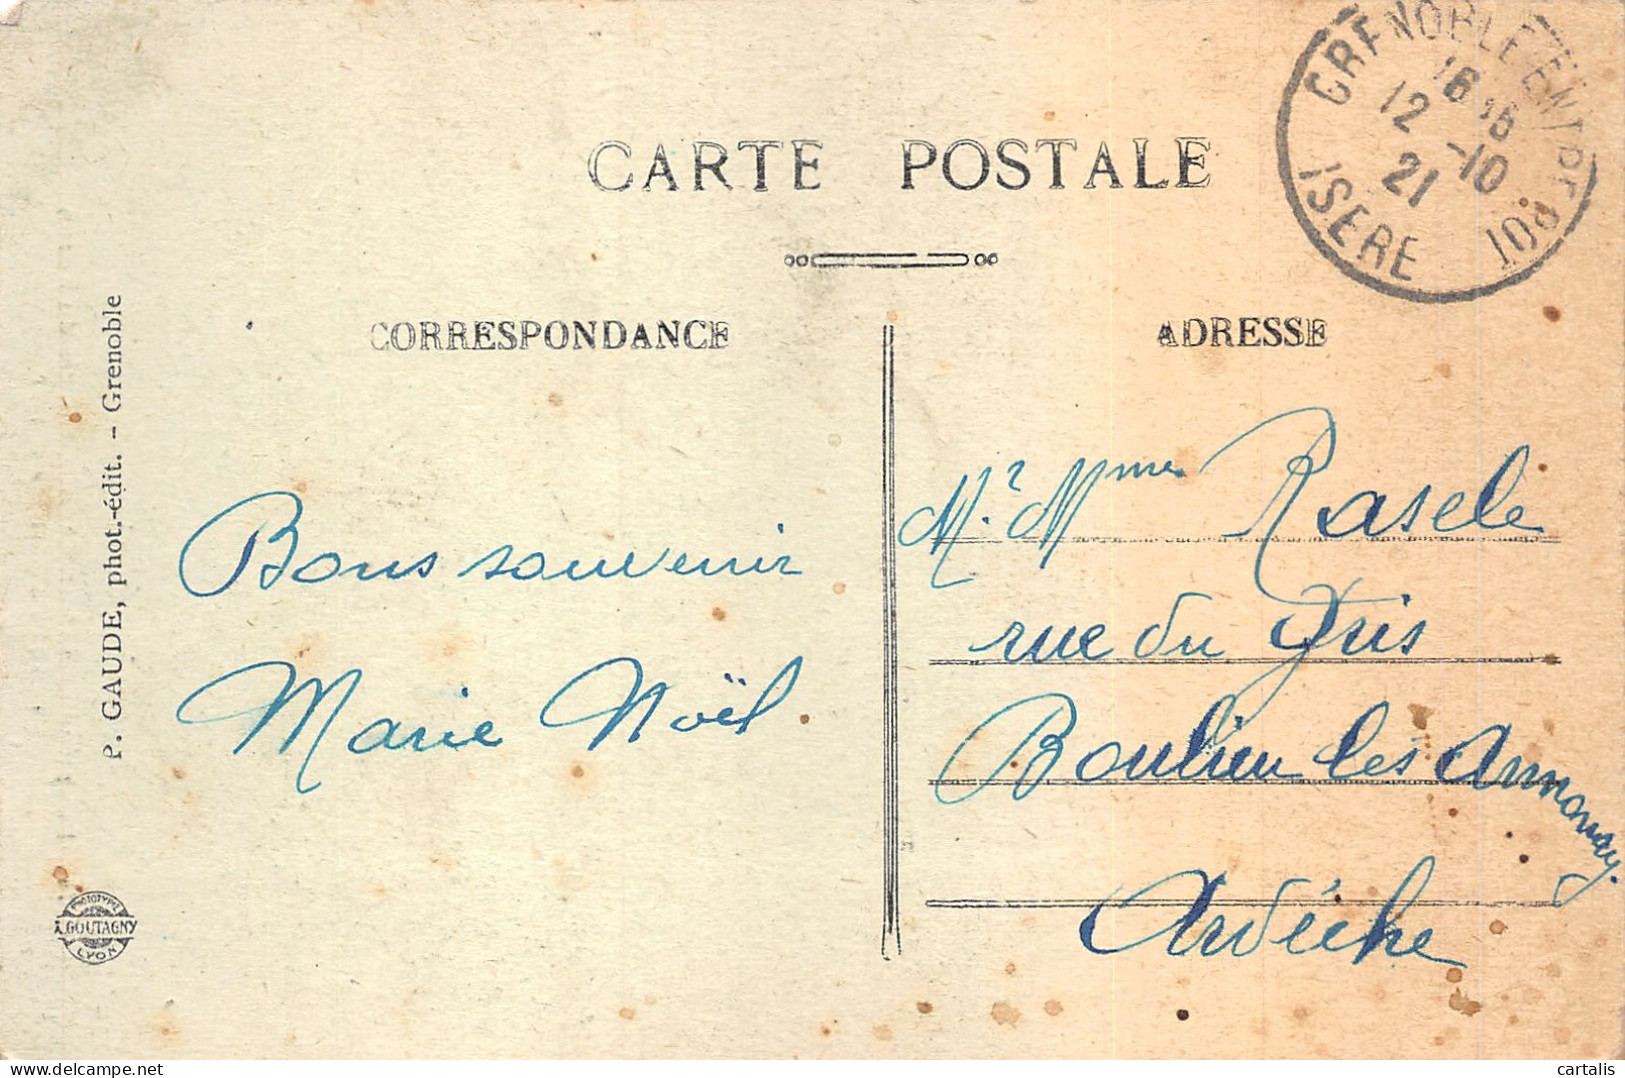 CARTE POSTALE
CORRESPONDANCE
ADRESSE
GRENOBLE ENTREPOT
16 16
12 -10
21
ISERE
P. GAUDE, phot.-édit. - Grenoble
Bons souvenir
Marie Noël.
Mr. Mme Rasele
rue du Gris
Boulieu les Annonay.
Ardèche
PHOTOTYPIE
A. GOUTAGNY
LYON
delcampe.net
cartalis